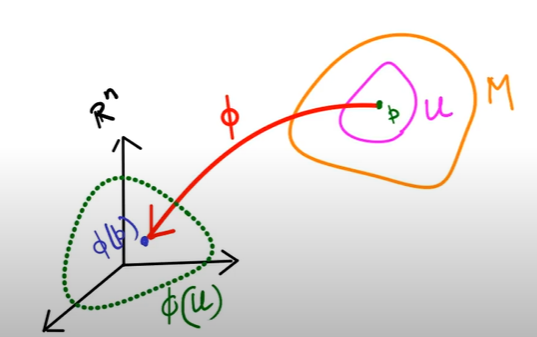 ℝⁿ
ϕ
p
U
M
ϕ(p)
ϕ(U)